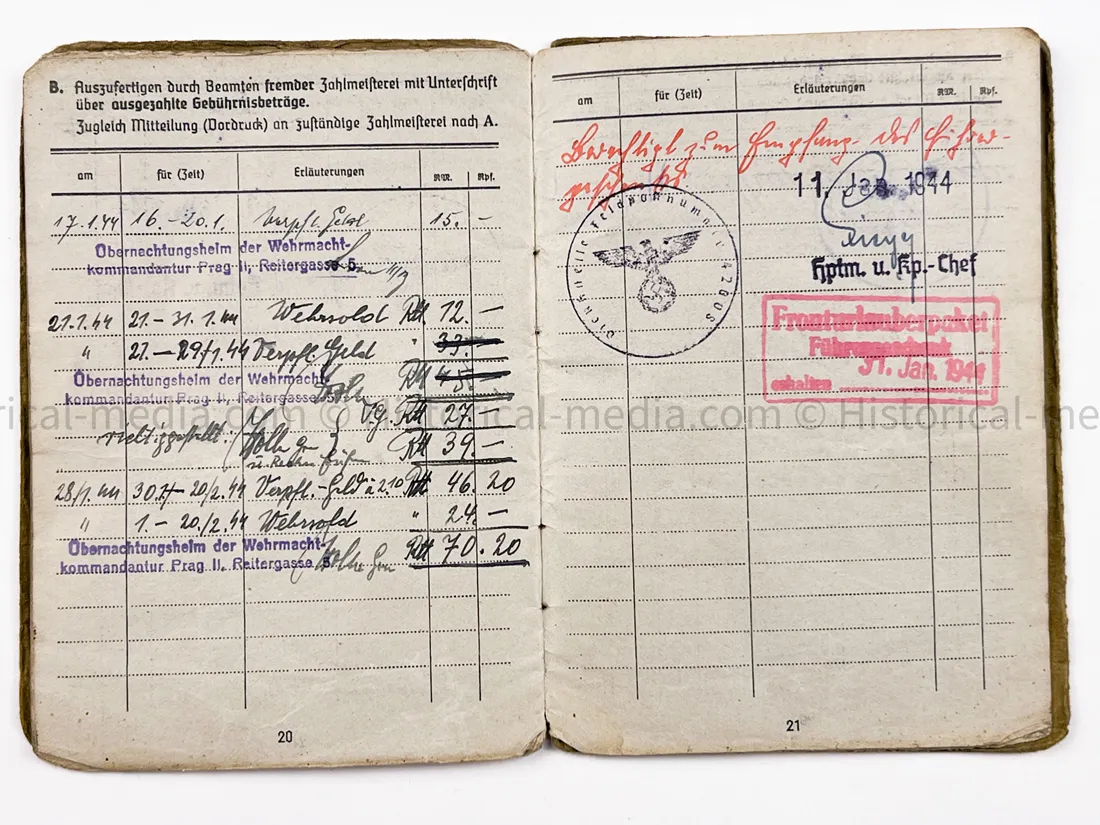 B. Auszufertigen durch Beamten fremder Zahlmeisterei mit Unterschrift
über ausgezahlte Gebührnisbeträge.
Zugleich Mitteilung (Vordruck) an zuständige Zahlmeisterei nach A.
am für (Zeit) Erläuterungen RM. Rpf.
17.1.44 16.-20.1. Verpfl. Geld 15. -
Übernachtungsheim der Wehrmacht-
kommandantur Prag II, Reitergasse 5.
21.1.44 21.-31.1.44 Wehrsold RM 12. -
" 21.-29/1.44 Verpfl. Geld " 33. -
RM 45. -
Übernachtungsheim der Wehrmacht-
kommandantur Prag II, Reitergasse 5
V.G. RM 27. -
richtiggestellt: RM 39. -
28/1.44 30.1-20/2.44 Verpfl.-Geld à 2.10 RM 46.20
" 1.-20./2.44 Wehrsold " 24. -
Übernachtungsheim der Wehrmacht- RM 70.20
kommandantur Prag II, Reitergasse 5
20
am für (Zeit) Erläuterungen RM. Rpf.
Berechtigt zum Empfang des Führer-
geschenks
11. Jan. 1944
Hptm. u. Kp.-Chef
Dienststelle Feldpostnummer
Fronturlauberpaket
Führergeschenk
31. Jan. 1944
erhalten
21
© Historical-media.com © Historical-me